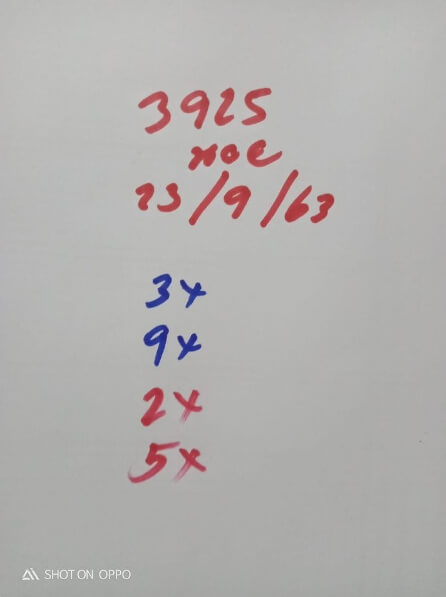 3925
23/9/63
3x
9x
2x
5x
SHOT ON OPPO